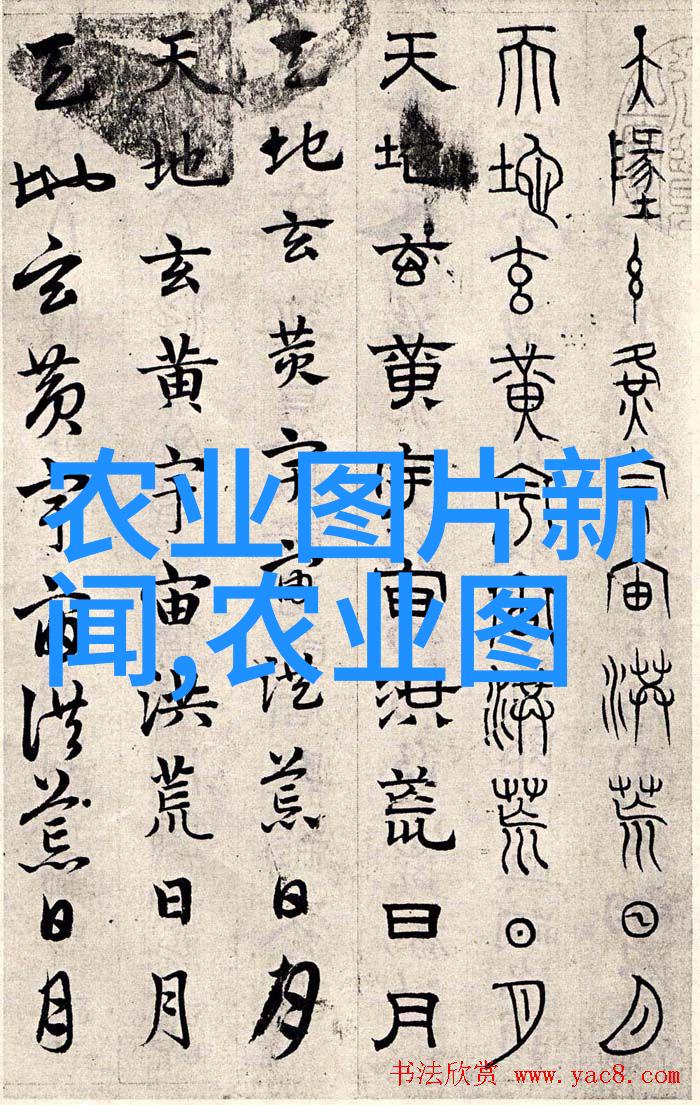 天墬玄黄宇宙洪荒日月
天地玄黄宇宙洪荒日月
天地玄黄宇宙洪荒日月
天地玄黄宇宙洪荒日月
天地玄黄宇宙洪荒日月
天地玄黄宇宙洪荒日月
农业图片新
闻,农业图
书法欣赏 www.yac8.com